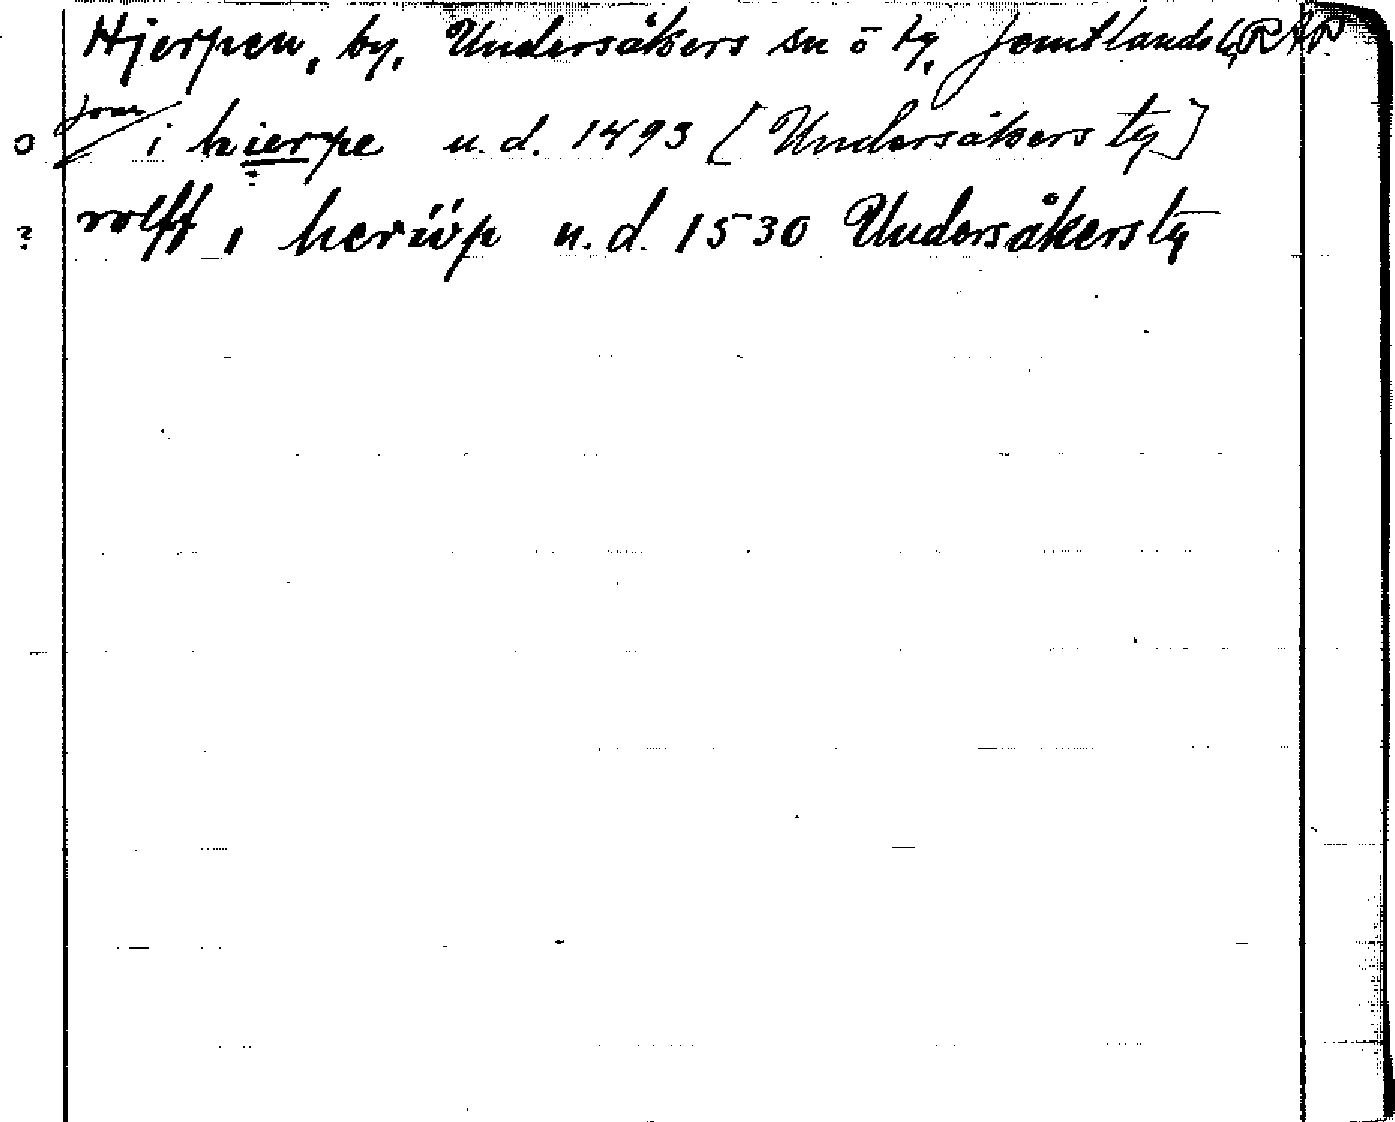 Hjerpen, by, Undersåkers sn o tg, Jemtlands l, RAP.
o Jon i hierpe u.d. 1493 [Undersåkers tg]
? rolff i heriöp u.d. 1530 Undersåkers tg